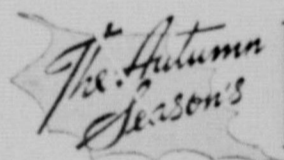 The Autumn
Season's